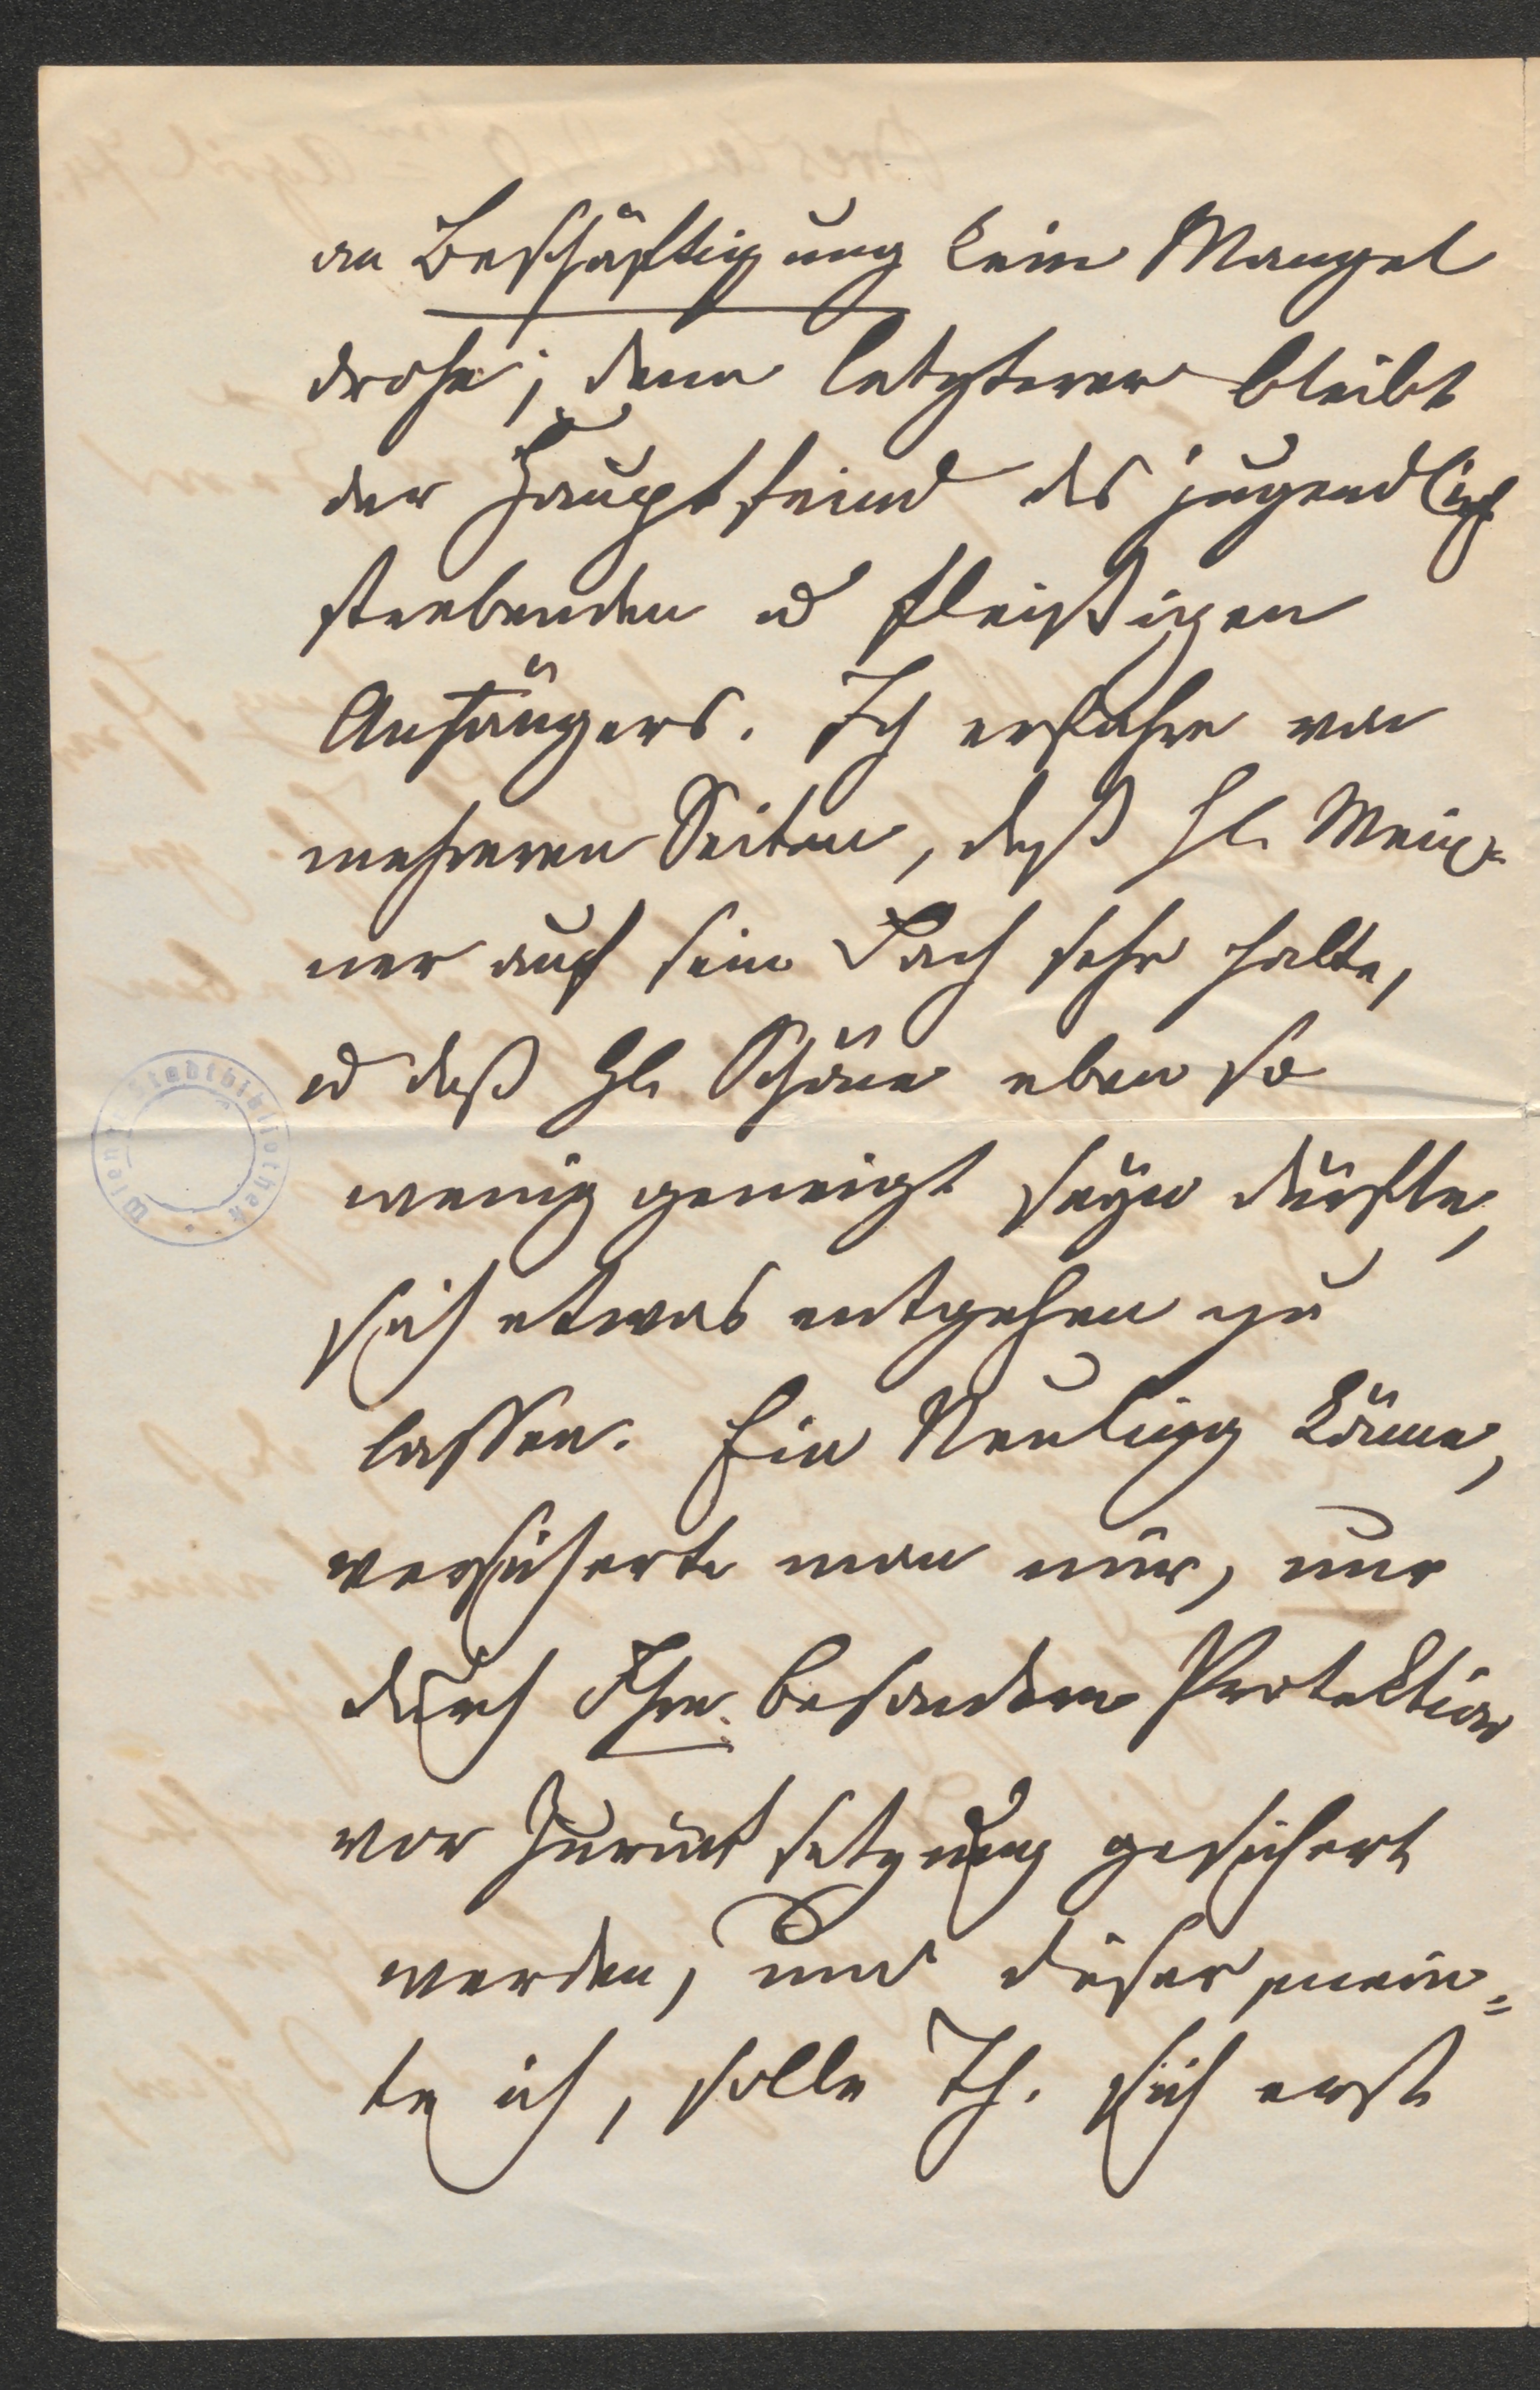 an Beschäftigung kein Mangel
drohe; denn letzterer bleibt
der Hauptfeind des jugendlich
strebenden u fleißigen
Anfängers. Ich erfahre von
mehreren Seiten, daß H. Meix=
ner auf sein Fach sehr halte,
u daß H. Schöne eben so
wenig geneigt seyn dürfte,
sich etwas entgehen zu
lassen. Ein Neuling könne,
versicherte man mir, nur
durch Ihre besondere Protektion
vor Zurücksetzung gesichert
werden, und dieser, mein=
te ich, solle Th. sich erst
Wiener Stadtbibliothek